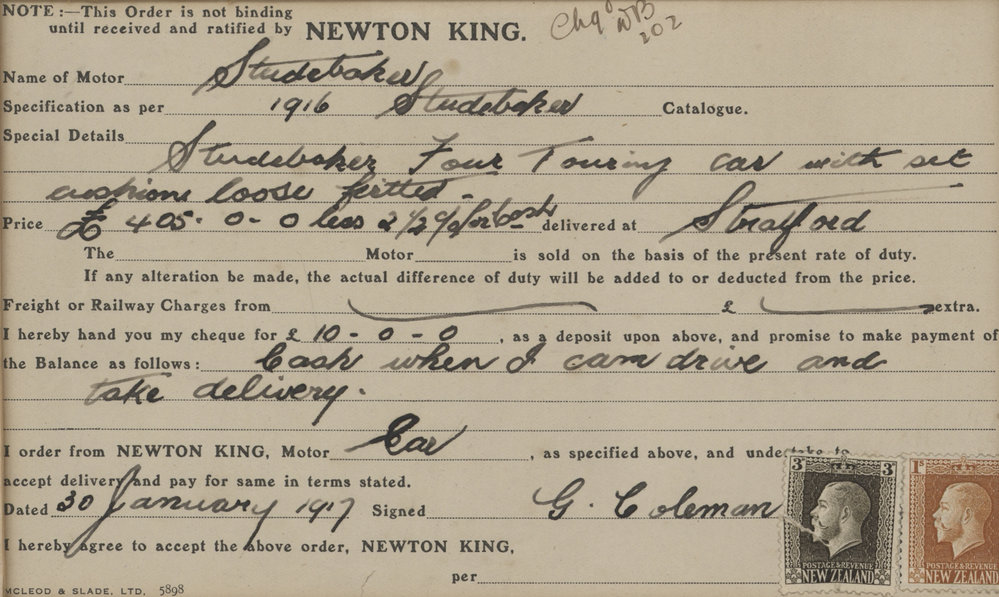 NOTE :—This Order is not binding
until received and ratified by NEWTON KING.
Chq
202
Name of Motor Studebaker
Specification as per 1916 Studebaker Catalogue.
Special Details
Studebaker Four Touring car with set
cushions loose fitted -
Price £405 - 0 - 0 less 2½% for Cash delivered at Stratford
The Motor is sold on the basis of the present rate of duty.
If any alteration be made, the actual difference of duty will be added to or deducted from the price.
Freight or Railway Charges from £ extra.
I hereby hand you my cheque for £ 10 - 0 - 0, as a deposit upon above, and promise to make payment of
the Balance as follows: Cash when I cam drive and
take delivery.
I order from NEWTON KING, Motor Car, as specified above, and undertake to
accept delivery and pay for same in terms stated.
Dated 30 January 1917 Signed G. Coleman
I hereby agree to accept the above order, NEWTON KING,
per
MCLEOD & SLADE, LTD. 5898
3 3
POSTAGE & REVENUE
NEW ZEALAND
1D
POSTAGE & REVENUE
NEW ZEALAND